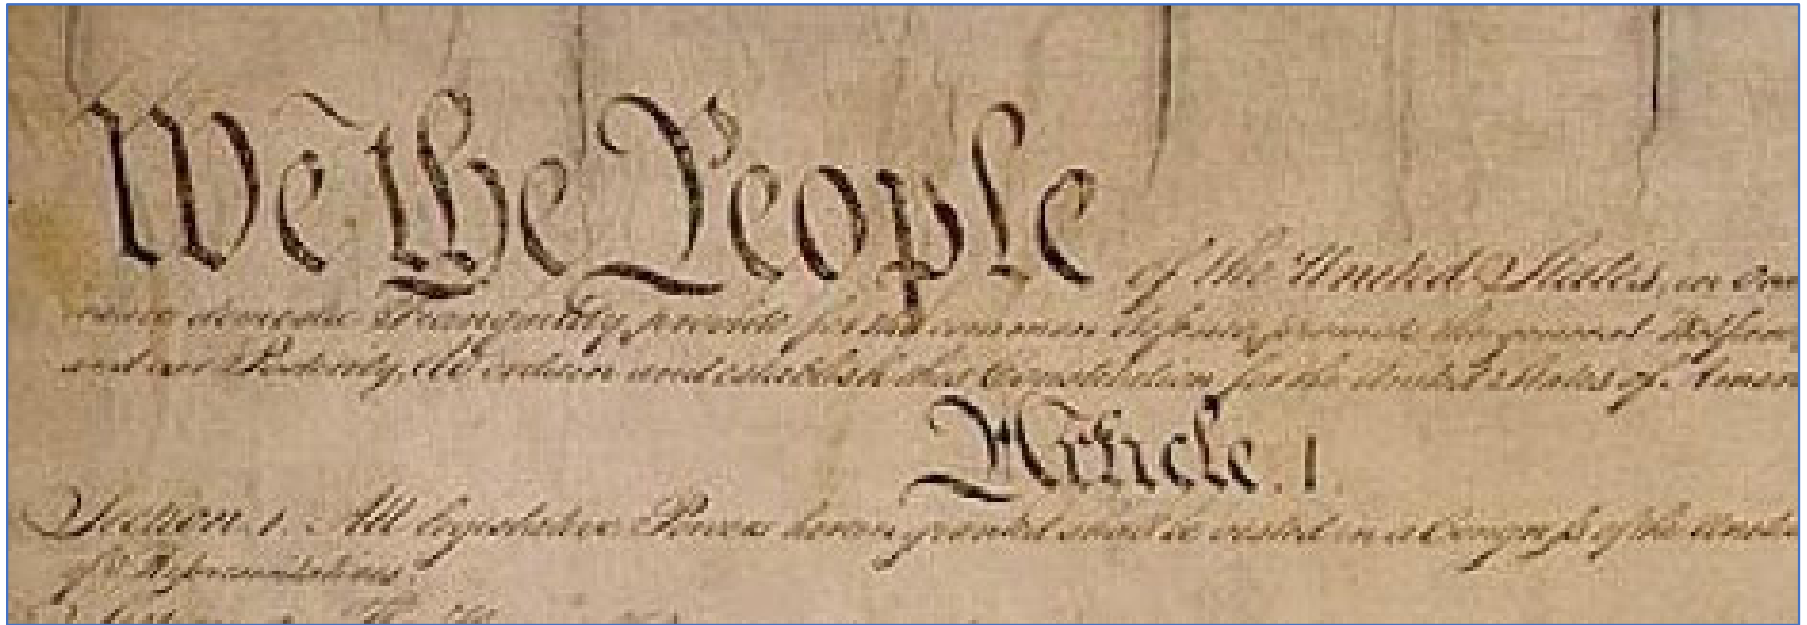 We the People of the United States, in Or
insure domestic Tranquility, provide for the common defence, promote the general Welfare,
and our Posterity, do ordain and establish this Constitution for the United States of Amer
Article. I.
Section. 1. All legislative Powers herein granted shall be vested in a Congress of the Unite
of Representatives.